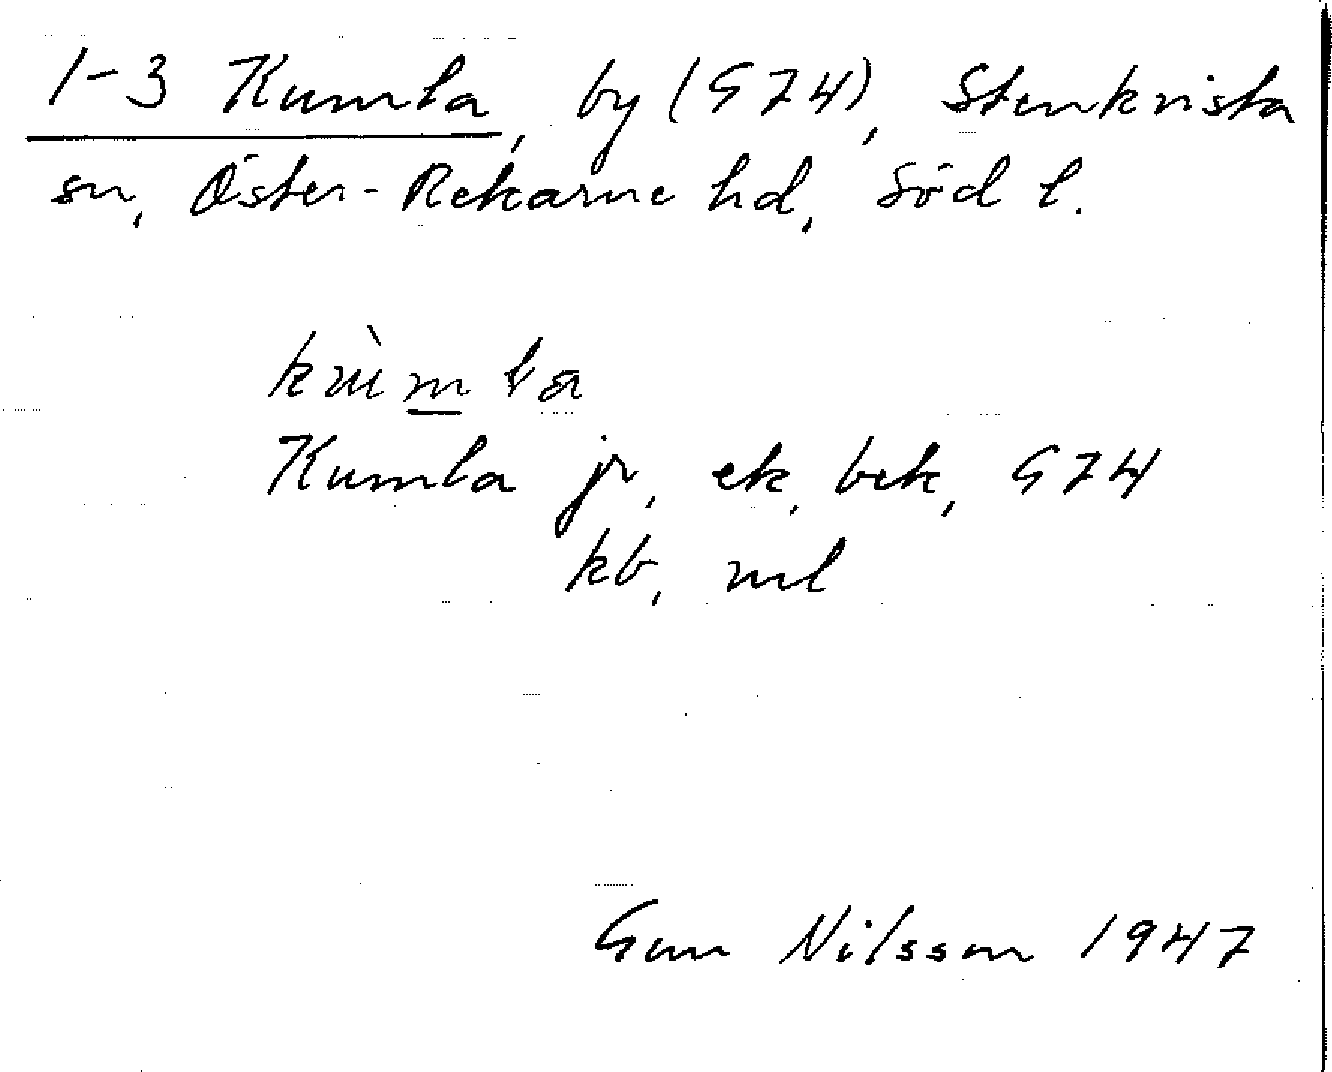 1-3 Kumla, by (G74), Stenkvista
sn, Öster-Rekarne hd, Söd l.
kùmla
Kumla jr, ek, bek, G74
kb, ml
Gun Nilsson 1947